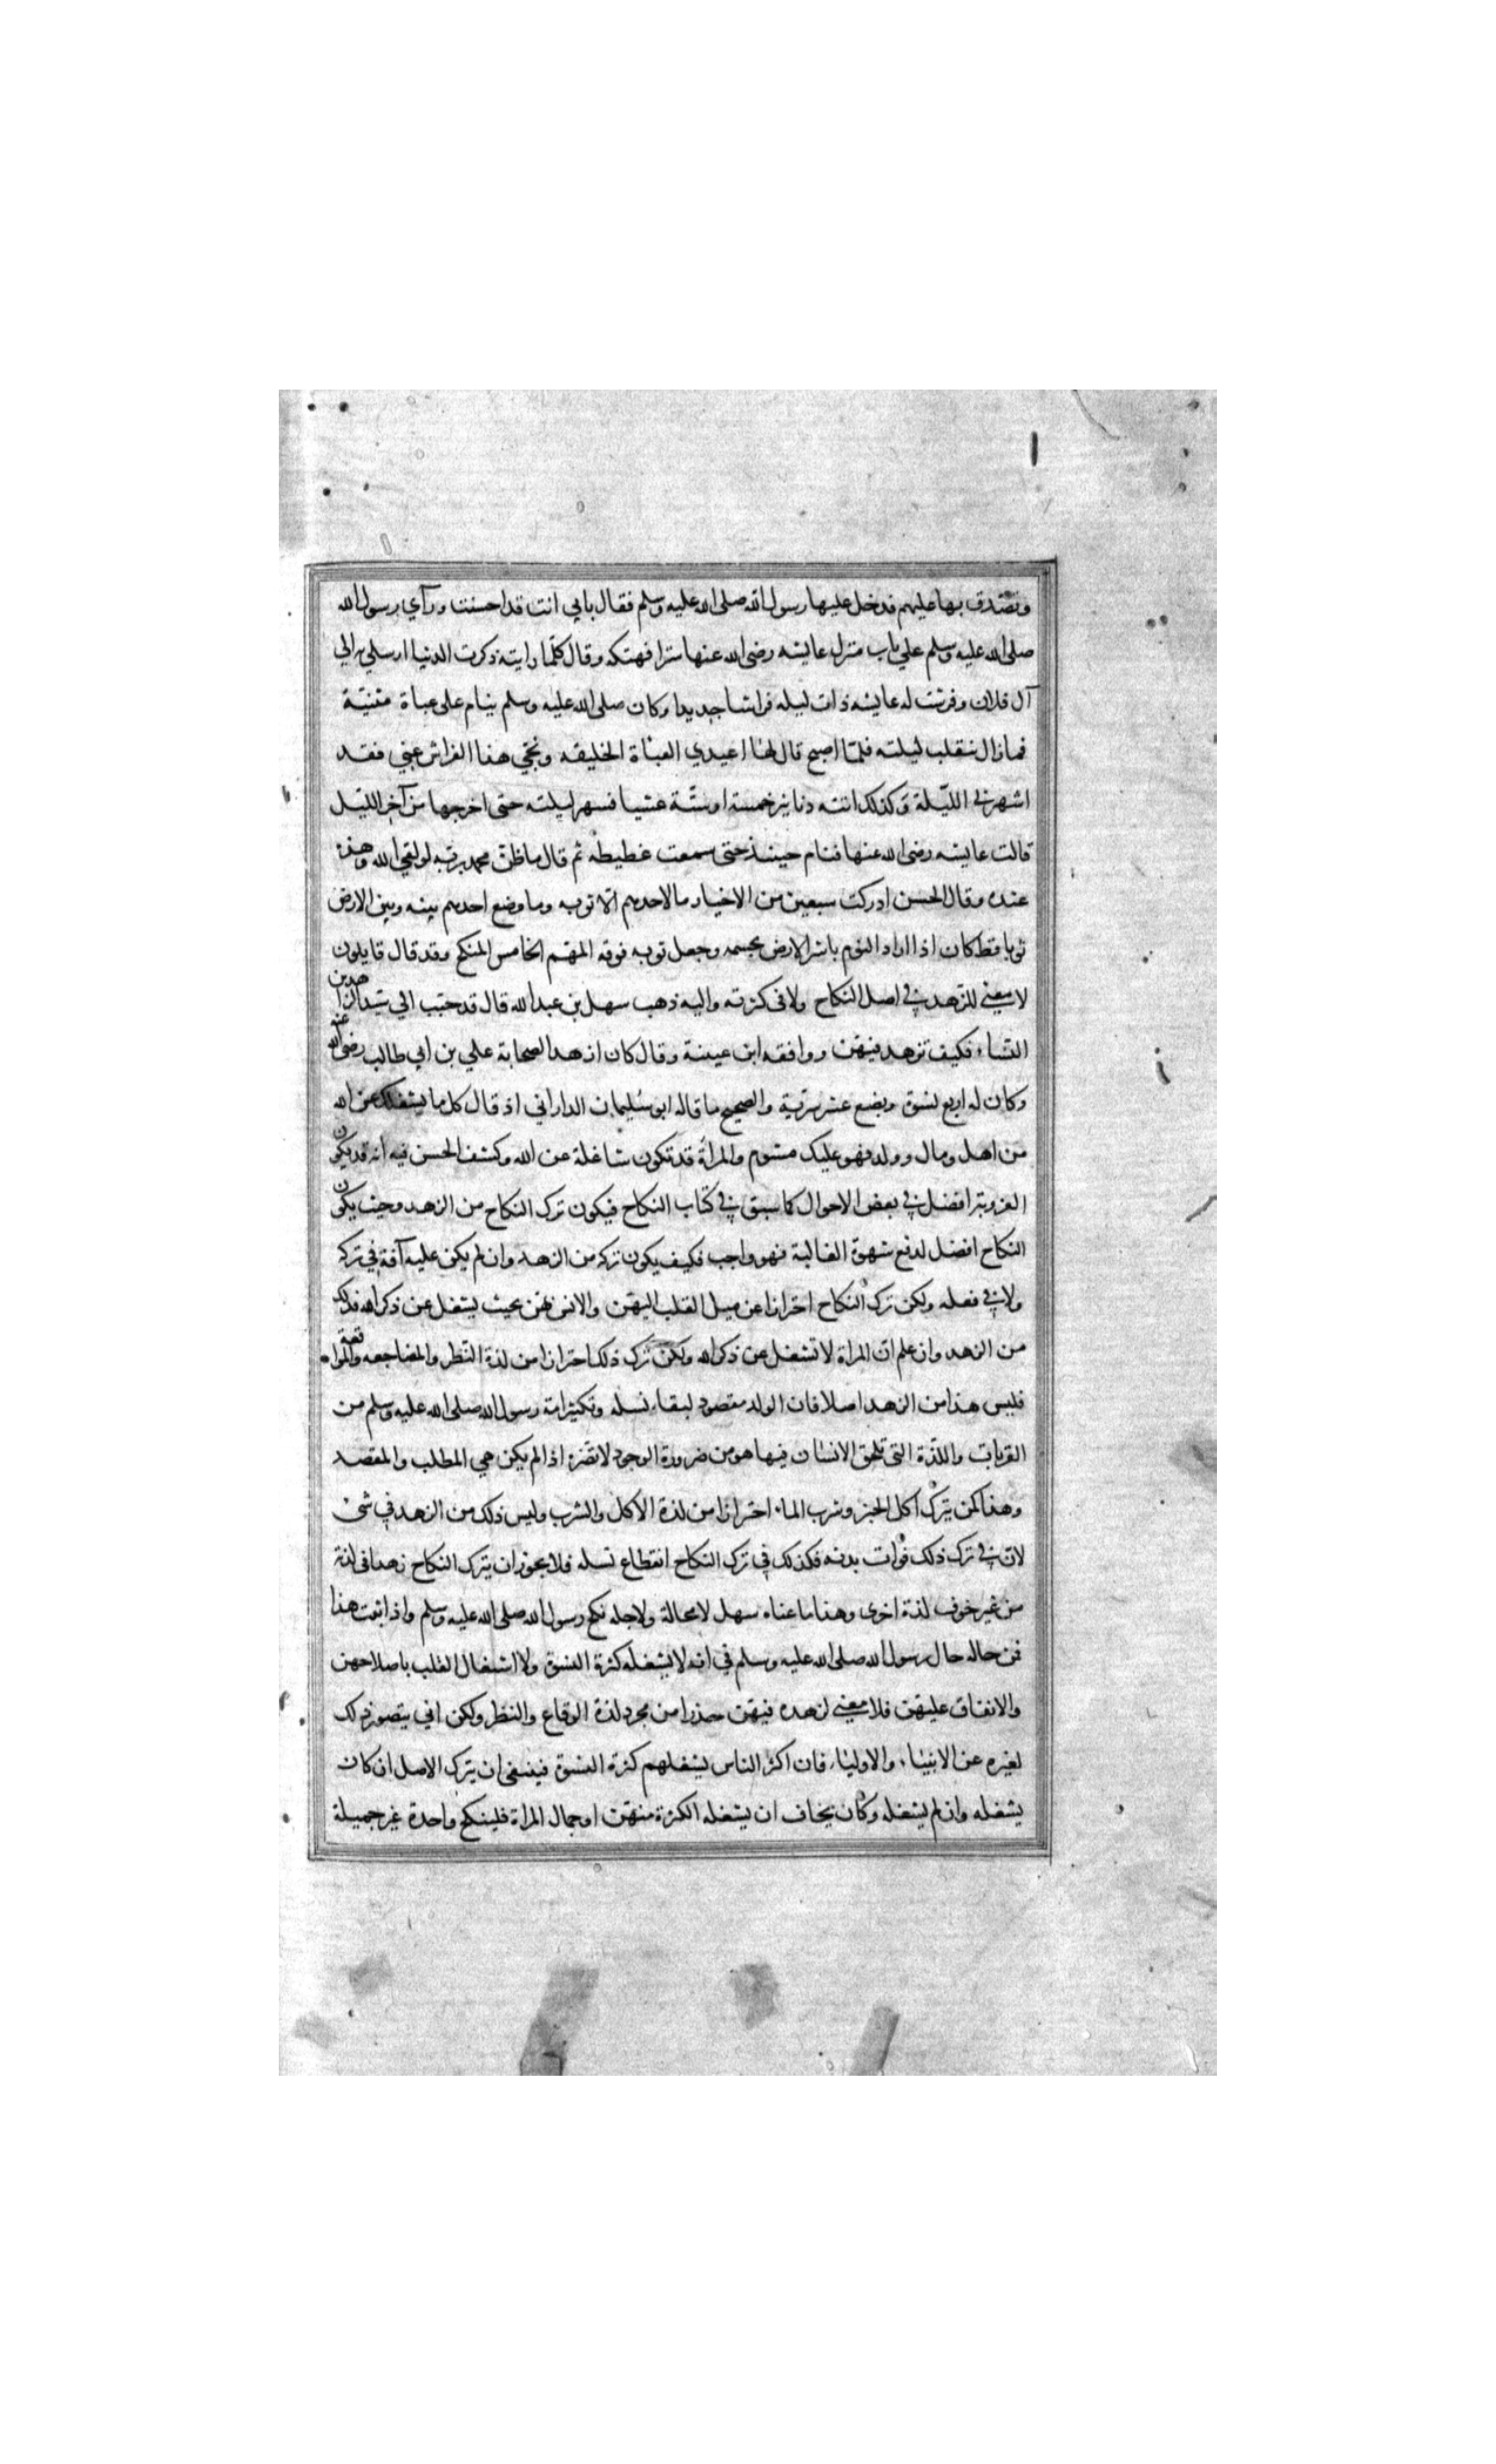 وتصدق بها عليهم فدخل عليها رسول الله صلى الله عليه وسلم فقال بابي انت قد احسنت ورآي رسول الله
صلى الله عليه وسلم علي باب منزل عايشه رضى الله عنها سترا فهتكه وقال كلّما رايته ذكرت الدنيا ارسلي به الي
آل فلان وفرشت له عايشه ذات ليله فراشا جديدا وكان صلى الله عليه وسلم ينام على عباة مثنيّة
فما زال ينقلب ليلته فلمّا اصبح قال لها اعيدي العباة الخليقه ونحّي هذا الفراش عنّي فقد
اسهرني الليّلة وكذلك اتته دنانير خمسة او ستّة عشيا فسهر ليلته حتى اخرجها من آخر الليّل
قالت عايشه رضى الله عنها فنام حينئذ حتى سمعت غطيطه ثم قال ما ظنّ محمد بربّه لو لقي الله وهذه
عنده وقال الحسن ادركت سبعين من الاخيار ما لاحدهم الا ثوبه وما وضع احدهم بينه وبين الارض
ثوبا قط كان اذا اراد النوم باشر الارض بجسمه وجعل ثوبه فوقه المهّم الخامس المنكح وقد قال قايلون
لا معني للزّهد في اصل النكاح ولا فى كثرته واليه ذهب سهل بن عبدالله قال قد حبّب الي سيّد الزاهدين
النّساء فكيف نزهد فيهنّ ووافقه ابن عيينة وقال كان ازهد الصحابة علي بن ابي طالب رضى الله عنه
وكان له اربع نسوة وبضع عشر سريّة والصحيح ما قاله ابو سُليمان الداراني اذ قال كل ما يشغلك عن الله
من اهل ومال وولد فهو عليك مشوم والمرأة قد تكون شاغلة عن الله وكشف الحسن فيه انّه قد يكون
العزوبة افضل في بعض الاحوال كما سبق في كتاب النكاح فيكون ترك النكاح من الزهد وحيث يكون
النكاح افضل لدفع شهوة الغالبة فهو واجب فكيف يكون تركه من الزهد وان لم يكن عليه آفة في تركه
ولا في فعله ولكن ترك النكاح احترازا عن ميل القلب اليهنّ والانس بهنّ بحيث يشغل عن ذكر الله فذلك
من الزهد وان علم انّ المراة لا تشغل عن ذكر الله ولكن ترك ذلك احترازا من لذة النّظر والمضاجعه والمواقعة
فليس هذا من الزهد اصلا فان الولد مقصود لبقاء نسله وتكثير امة رسول الله صلى الله عليه وسلم من
القربات واللّذة التى تلحق الانسان فيها هو من ضرورة الوجود لا تضّره اذا لم يكن هي المطلب والمقصد
وهذا كمن يترك اكل الخبز وشرب الماء احترازا من لذة الاكل والشرب وليس ذلك من الزهد في شئ
لانّ في ترك ذلك فوات بدنه فكذلك في ترك النكاح انقطاع نسله فلا يجوز ان يترك النكاح زهدا فى لذته
من غير خوف لذة اخرى وهذا ما عناه سهل لا محالة ولاجله نكح رسول الله صلى الله عليه وسلم واذا ثبت هذا
فمن حاله حال رسول الله صلى الله عليه وسلم في انه لا يشغله كثرة النسوة ولا اشتغال القلب باصلاحهن
والانفاق عليهنّ فلا معني لزهده فيهنّ حذرا من مجرد لذة الوقاع والنظر ولكن اني يتصور ذلك
لغيره عن الانبياء والاولياء فان اكثر الناس يشغلهم كثرة النسوة فينبغى ان يترك الاصل ان كان
يشغله وان لم يشغله وكان يخاف ان يشغله الكثرة منهنّ او جمال المراة فلينكح واحدة غير جميلة